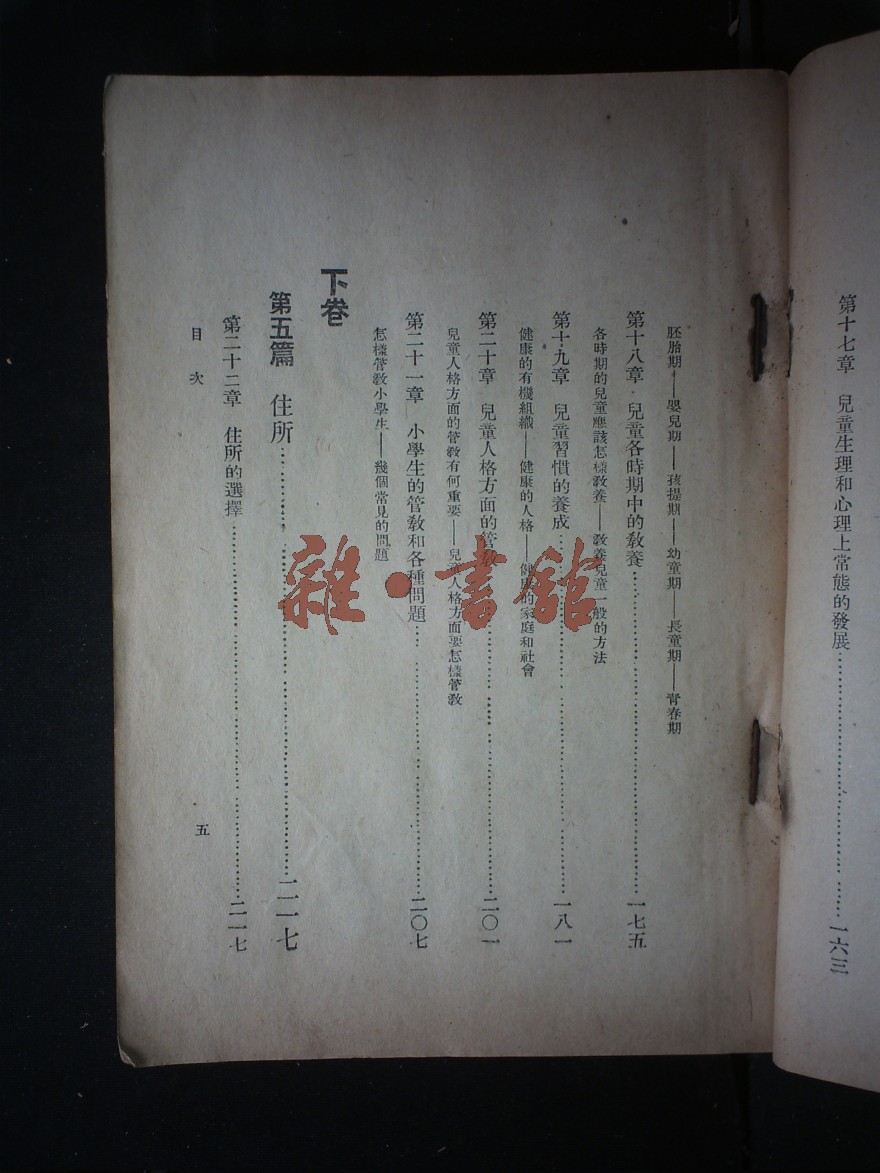 第十七章　兒童生理和心理上常態的發展……一六三
胚胎期——嬰兒期——孩提期——幼童期——長童期——青春期
第十八章　兒童各時期中的敎養……一七五
各時期的兒童應該怎樣敎養——敎養兒童一般的方法
第十九章　兒童習慣的養成……一八一
健康的有機組織——健康的人格——健康的家庭和社會
第二十章　兒童人格方面的管敎……二〇一
兒童人格方面的管敎有何重要——兒童人格方面要怎樣管敎
第二十一章　小學生的管敎和各種問題……二〇七
怎樣管敎小學生——幾個常見的問題
下卷
第五篇　住所……二一七
第二十二章　住所的選擇……二一七
目次
五
雜·書館